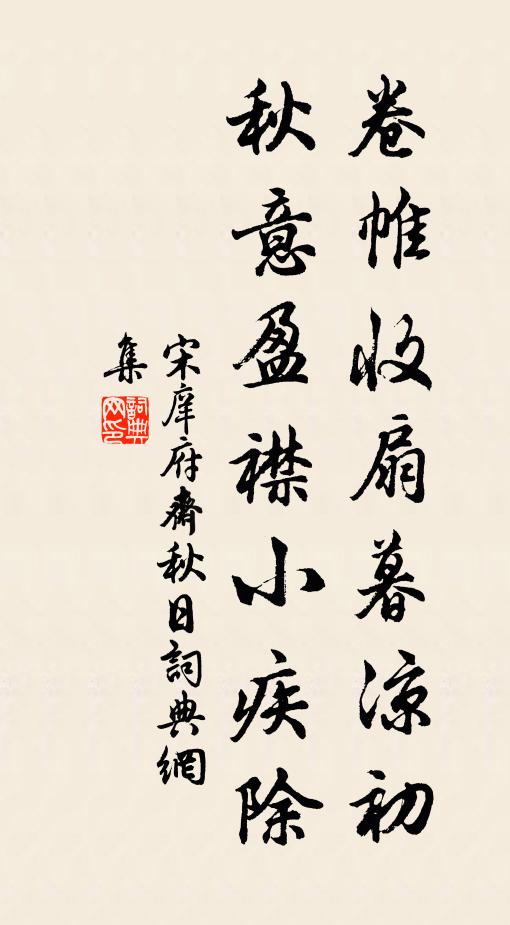 卷帷收扇暮凉初
秋意盈襟小疾除
宋庠府齋秋日詞典網
集
詞典網印